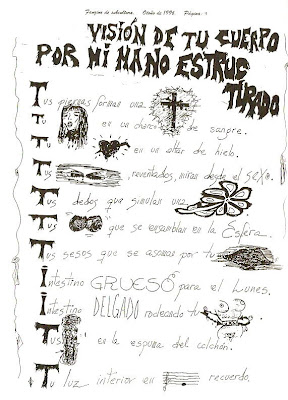 Fanzine de subcultura. Verano de 1996. Página
VISIÓN DE TU CUERPO
POR MI MANO ESTRUC
TURADO
Tus piernas forman una
Tu en un charco de sangre.
Tu en un altar de hielo.
Tus , reventados, miran desde el sexo.
Tus dedos que simulan una
Tus que se ensamblan en la Esfera.
Tus sesos que se asoman por tu
Intestino GRUESO para el Lunes.
Intestino DELGADO rodeando tu
Tus en la espuma del colchón.
Tu luz interior en recuerdo.